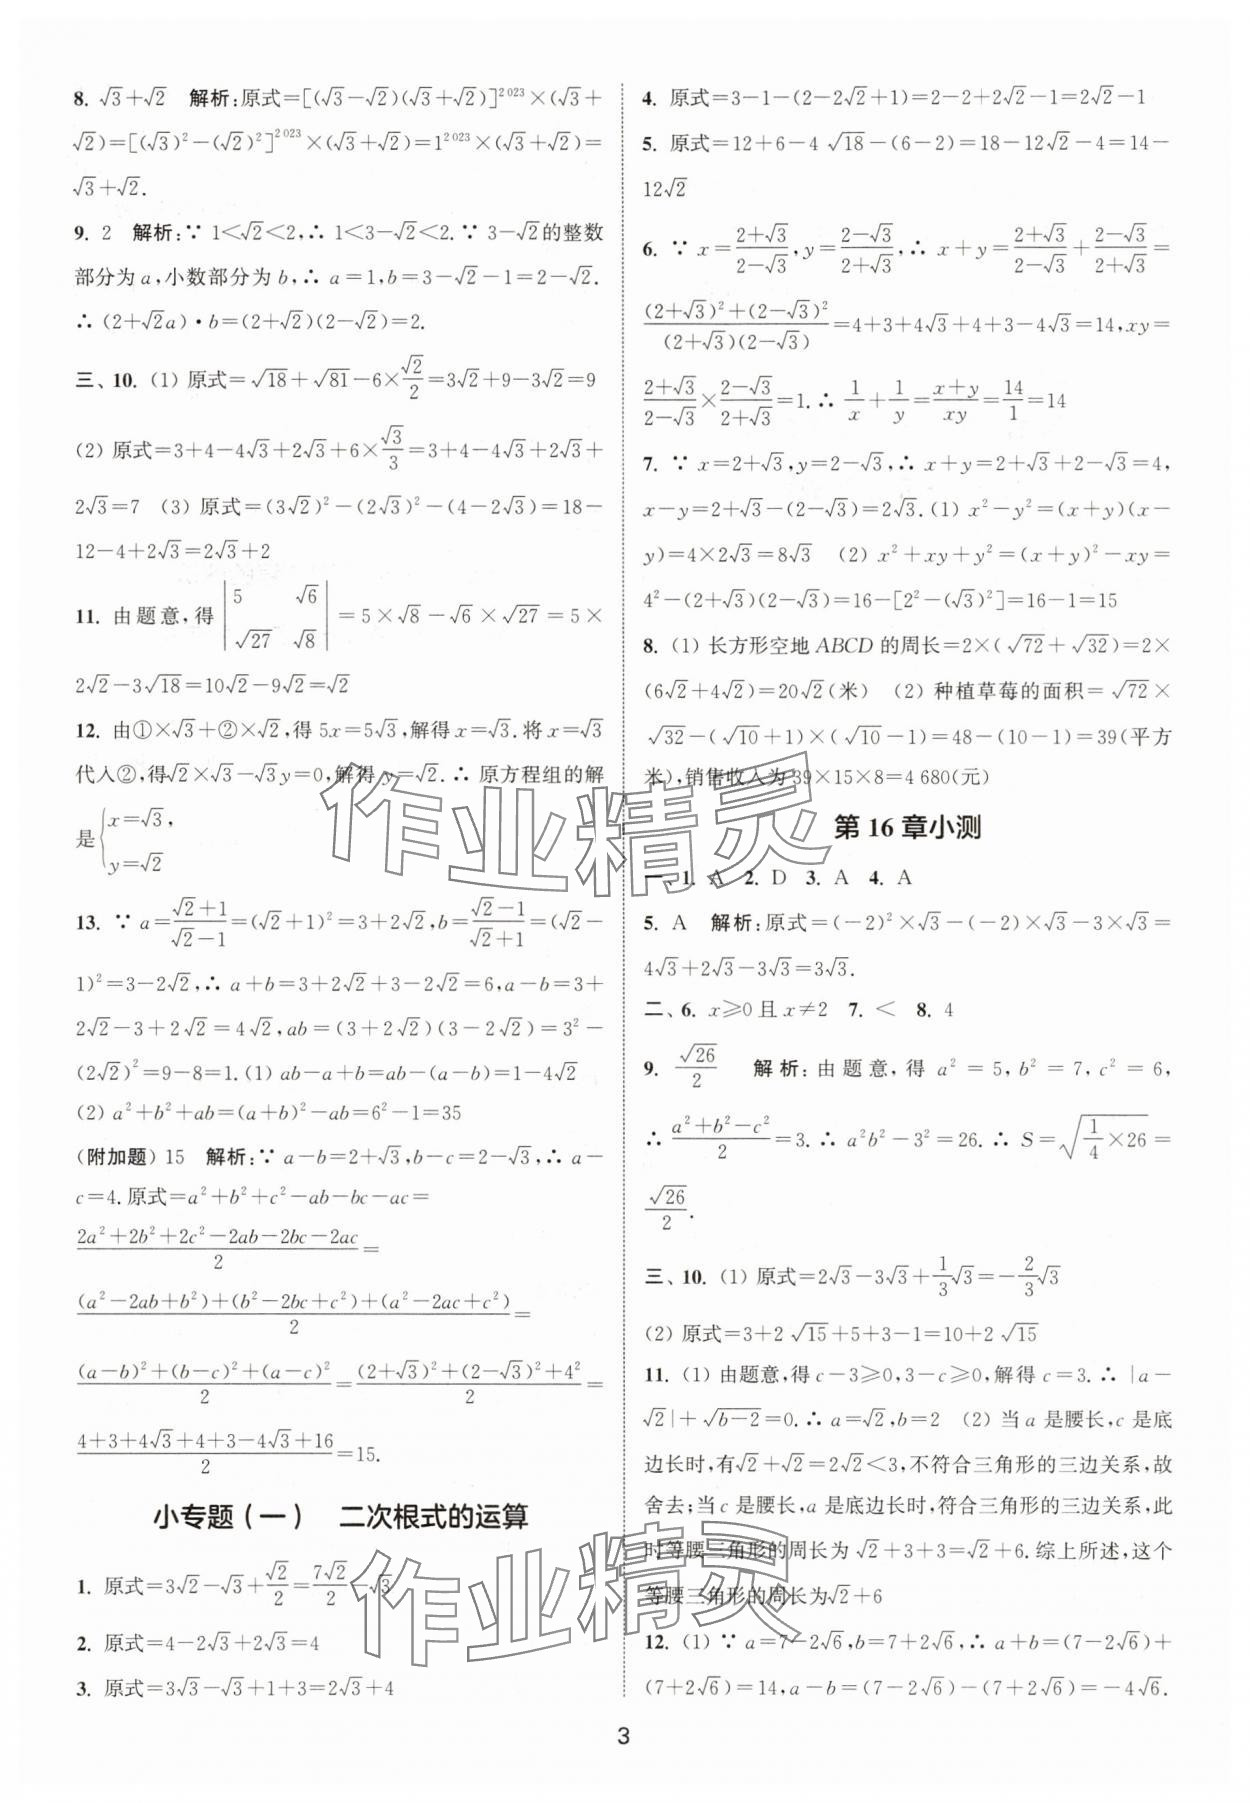 8. √3+√2　解析:原式=[(√3-√2)(√3+√2)]²⁰²³×(√3+
√2)=[(√3)²-(√2)²]²⁰²³×(√3+√2)=1²⁰²³×(√3+√2)=
√3+√2.
9. 2　解析:∵ 1<√2<2,∴ 1<3-√2<2.∵ 3-√2的整数
部分为a,小数部分为b,∴ a=1,b=3-√2-1=2-√2.
∴ (2+√2a)·b=(2+√2)(2-√2)=2.
三、10. (1) 原式=√18+√81-6×√2/2=3√2+9-3√2=9
(2) 原式=3+4-4√3+2√3+6×√3/3=3+4-4√3+2√3+
2√3=7　(3) 原式=(3√2)²-(2√3)²-(4-2√3)=18-
12-4+2√3=2√3+2
11. 由题意,得 |5　√6; √27　√8| =5×√8-√6×√27=5×
2√2-3√18=10√2-9√2=√2
12. 由①×√3+②×√2,得5x=5√3,解得x=√3.将x=√3
代入②,得√2×√3-√3y=0,解得y=√2.∴ 原方程组的解
是{x=√3,
y=√2
13. ∵ a=(√2+1)/(√2-1)=(√2+1)²=3+2√2,b=(√2-1)/(√2+1)=(√2-
1)²=3-2√2,∴ a+b=3+2√2+3-2√2=6,a-b=3+
2√2-3+2√2=4√2,ab=(3+2√2)(3-2√2)=3²-
(2√2)²=9-8=1.(1) ab-a+b=ab-(a-b)=1-4√2
(2) a²+b²+ab=(a+b)²-ab=6²-1=35
(附加题) 15　解析:∵ a-b=2+√3,b-c=2-√3,∴ a-
c=4.原式=a²+b²+c²-ab-bc-ac=
(2a²+2b²+2c²-2ab-2bc-2ac)/2=
((a²-2ab+b²)+(b²-2bc+c²)+(a²-2ac+c²))/2=
((a-b)²+(b-c)²+(a-c)²)/2=((2+√3)²+(2-√3)²+4²)/2=
(4+3+4√3+4+3-4√3+16)/2=15.
小专题(一)　二次根式的运算
1. 原式=3√2-√3+√2/2=7√2/2-√3
2. 原式=4-2√3+2√3=4
3. 原式=3√3-√3+1+3=2√3+4
4. 原式=3-1-(2-2√2+1)=2-2+2√2-1=2√2-1
5. 原式=12+6-4√18-(6-2)=18-12√2-4=14-
12√2
6. ∵ x=(2+√3)/(2-√3),y=(2-√3)/(2+√3),∴ x+y=(2+√3)/(2-√3)+(2-√3)/(2+√3)=
((2+√3)²+(2-√3)²)/((2+√3)(2-√3))=4+3+4√3+4+3-4√3=14,xy=
(2+√3)/(2-√3)×(2-√3)/(2+√3)=1.∴ 1/x+1/y=(x+y)/xy=14/1=14
7. ∵ x=2+√3,y=2-√3,∴ x+y=2+√3+2-√3=4,
x-y=2+√3-(2-√3)=2√3.(1) x²-y²=(x+y)(x-
y)=4×2√3=8√3　(2) x²+xy+y²=(x+y)²-xy=
4²-(2+√3)(2-√3)=16-[2²-(√3)²]=16-1=15
8. (1) 长方形空地ABCD的周长=2×(√72+√32)=2×
(6√2+4√2)=20√2(米)　(2) 种植草莓的面积=√72×
√32-(√10+1)×(√10-1)=48-(10-1)=39(平方
米),销售收入为39×15×8=4 680(元)
第16章小测
一、1. A　2. D　3. A　4. A
5. A　解析:原式=(-2)²×√3-(-2)×√3-3×√3=
4√3+2√3-3√3=3√3.
二、6. x≥0且x≠2　7. <　8. 4
9. √26/2　解析:由题意,得a²=5,b²=7,c²=6,
∴ (a²+b²-c²)/2=3.∴ a²b²-3²=26.∴ S=√(1/4×26)=
√26/2.
三、10. (1) 原式=2√3-3√3+1/3√3=-2/3√3
(2) 原式=3+2√15+5+3-1=10+2√15
11. (1) 由题意,得c-3≥0,3-c≥0,解得c=3.∴ |a-
√2|+√(b-2)=0.∴ a=√2,b=2　(2) 当a是腰长,c是底
边长时,有√2+√2=2√2<3,不符合三角形的三边关系,故
舍去;当c是腰长,a是底边长时,符合三角形的三边关系,此
时等腰三角形的周长为√2+3+3=√2+6.综上所述,这个
等腰三角形的周长为√2+6
12. (1) ∵ a=7-2√6,b=7+2√6,∴ a+b=(7-2√6)+
(7+2√6)=14,a-b=(7-2√6)-(7+2√6)=-4√6.
3
作业精灵
作业精灵